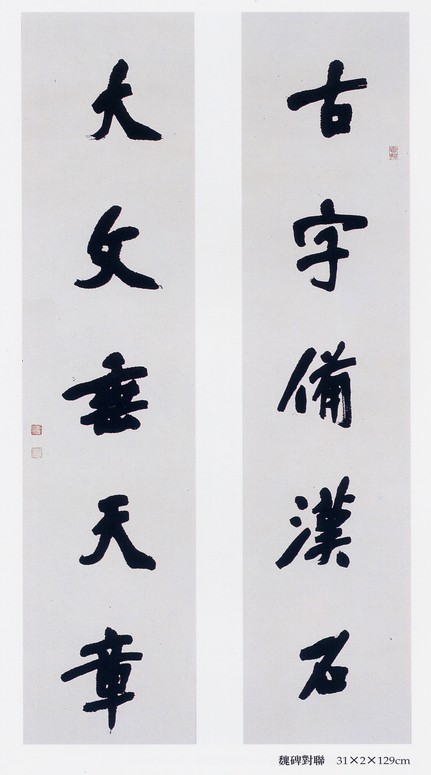 古字備漢石
大文垂天章
魏碑對聯 31×2×129cm